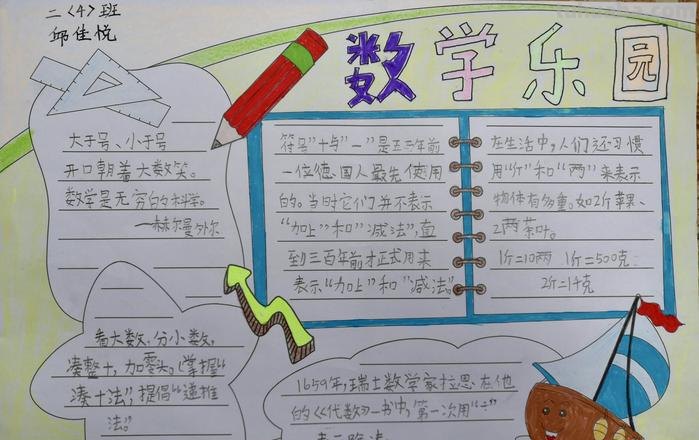 二〈4〉班
邱佳悦
数学乐园
大于号、小于号
开口朝着大数笑。
数学是无穷的科学。
—赫尔曼外尔
符号"十与"一"是五百年前
一位德国人最先使用
的。当时它们并不表示
"加上"和"减法",直
到三百年前才正式用来
表示"加上"和"减法。
在生活中,人们还习惯
用"斤"和"两"来表示
物体有多重。如2斤苹果、
2两茶叶。
1斤=10两 1斤=500克
2斤=1千克
看大数,分小数,
凑整十,加零头。(掌握"
凑十法",提倡"递推
法。"
1659年,瑞士数学家拉恩在他
的《代数》一书中,第一次用"÷"
表示除法